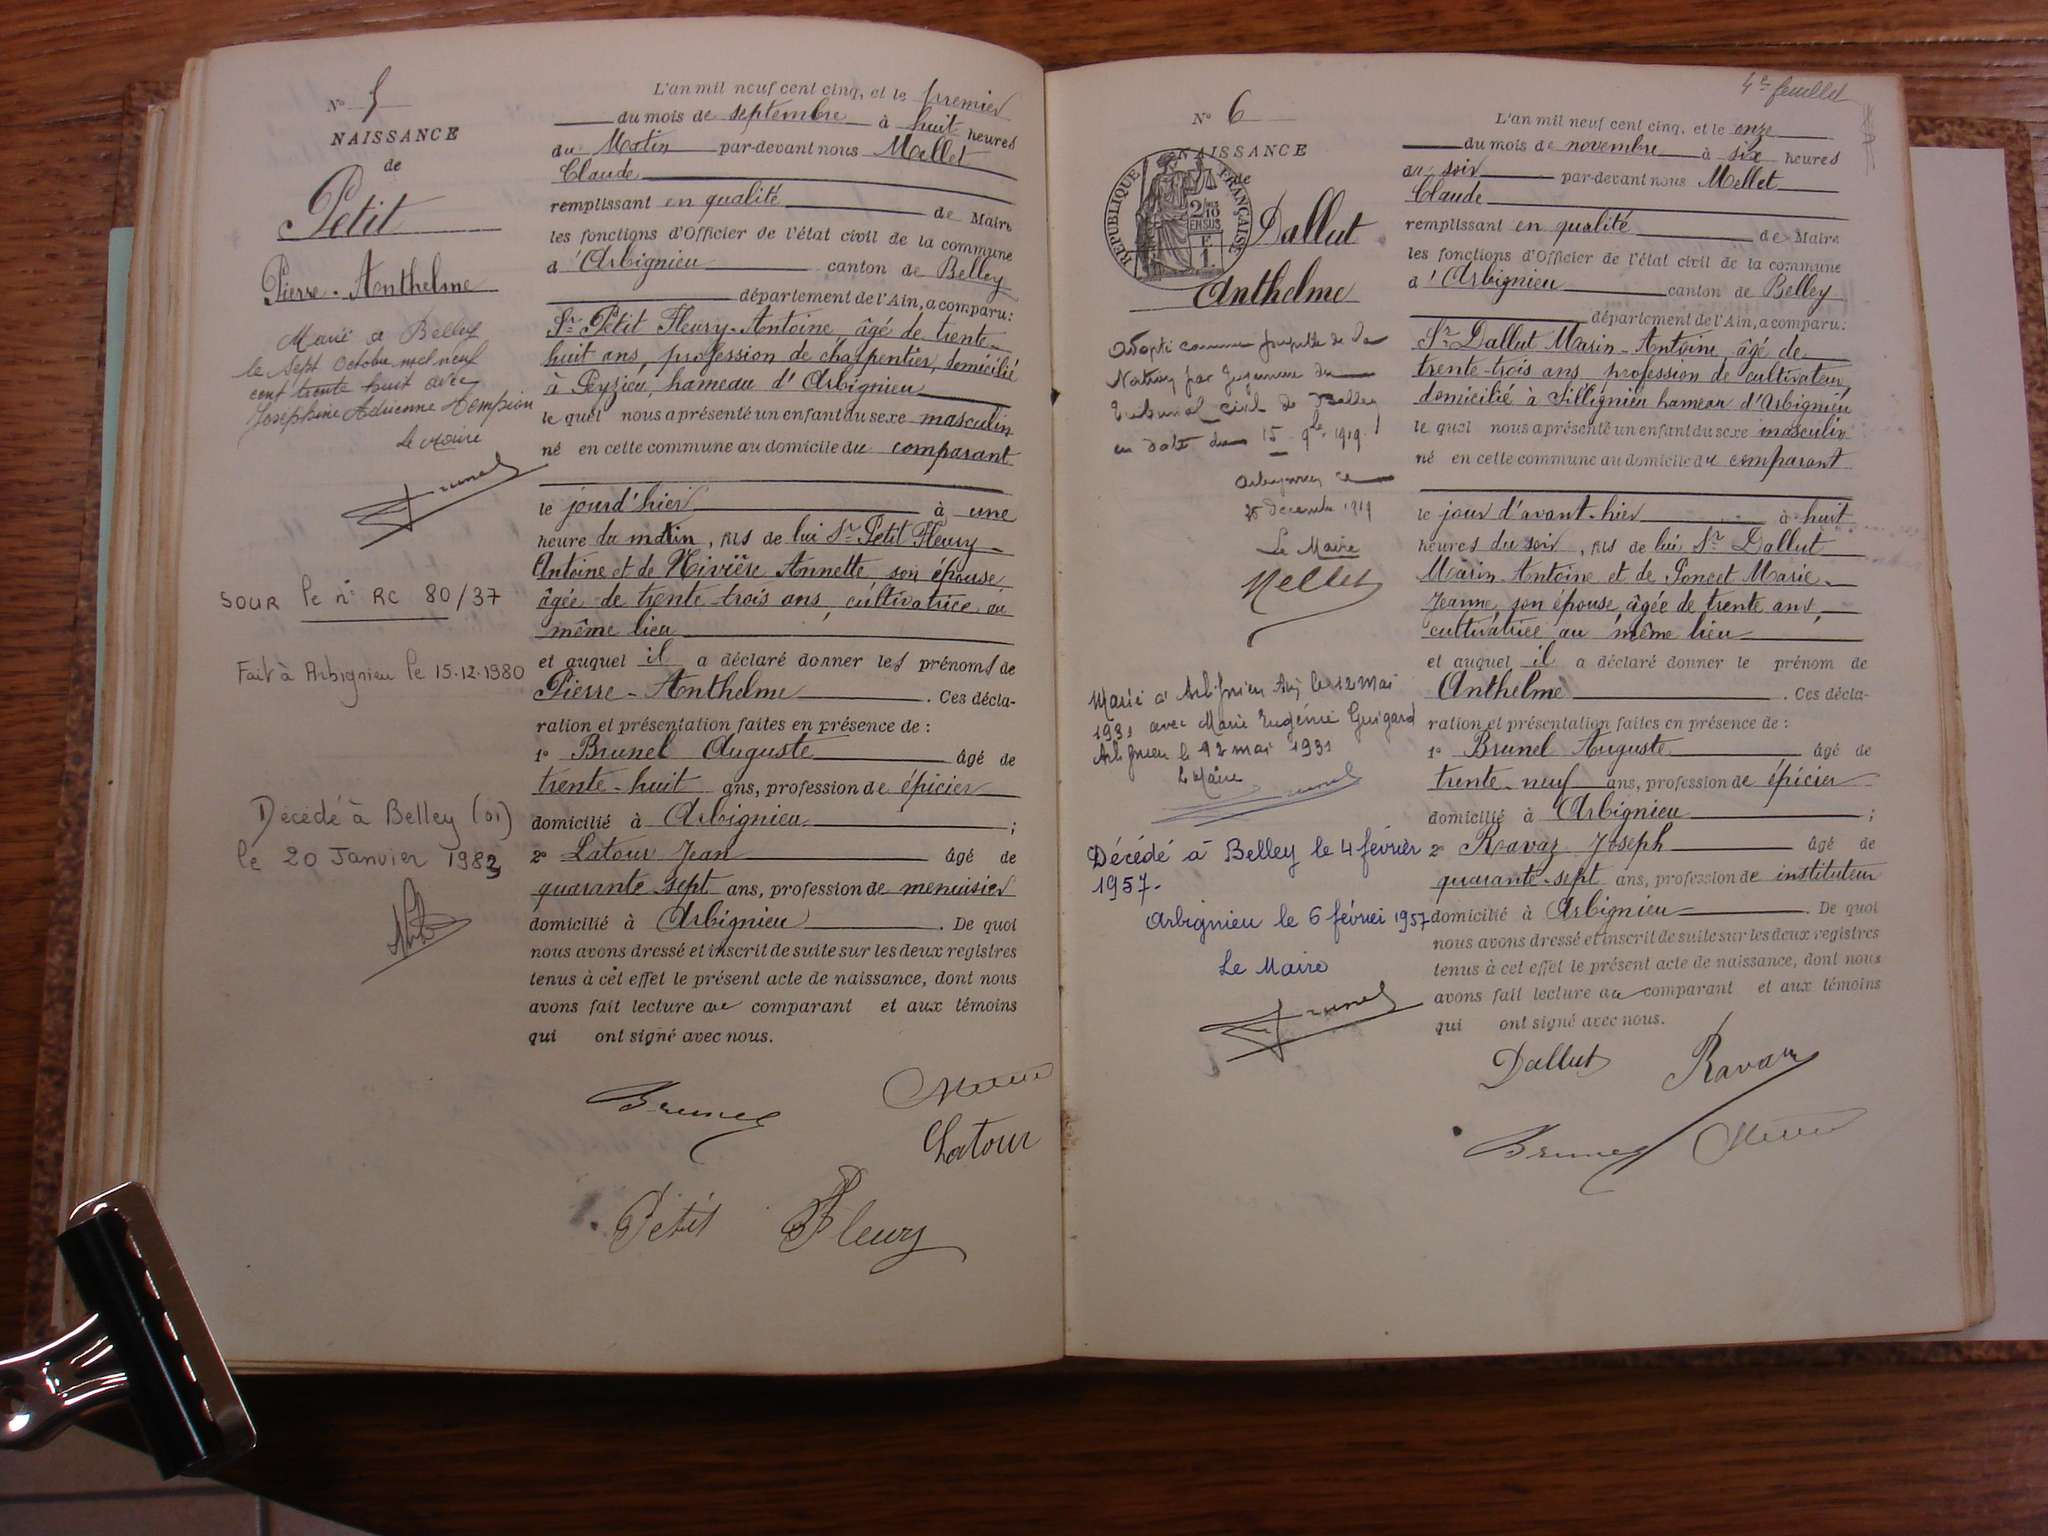 N° 5
NAISSANCE
de
Petit
Pierre-Anthelme
Marié à Belley
le sept octobre mil neuf
cent trente huit avec
Josephine Adrienne Tempion
Le Maire
Brunel
le n° RC 80/37
Fait à Arbignieu le 15.12.1980
Décédé à Belley (01)
le 20 Janvier 1982
L'an mil neuf cent cinq, et le premier
du mois de septembre à huit heures
du Matin par-devant nous Mellet
Claude
remplissant en qualité de Maire
les fonctions d'Officier de l'état civil de la commune
d'Arbignieu canton de Belley
département de l'Ain, a comparu:
Sr Petit Fleury-Antoine, âgé de trente-
huit ans, profession de charpentier, domicilié
à Peyzieu, hameau d'Arbignieu
le quel nous a présenté un enfant du sexe masculin
né en cette commune au domicile du comparant
le jour d'hier à une
heure du matin, fils de lui Sr Petit Fleury-
Antoine et de Rivière Annette, son épouse
âgée de trente-trois ans, cultivatrice au
même lieu
et auquel il a déclaré donner les prénoms de
Pierre-Anthelme. Ces décla-
ration et présentation faites en présence de :
1° Brunel Auguste âgé de
trente-huit ans, profession de épicier
domicilié à Arbignieu ;
2° Latour Jean âgé de
quarante-sept ans, profession de menuisier
domicilié à Arbignieu. De quoi
nous avons dressé et inscrit de suite sur les deux registres
tenus à cet effet le présent acte de naissance, dont nous
avons fait lecture au comparant et aux témoins
qui ont signé avec nous.
Brunel Mellet
Latour
Petit Fleury
4e feuillet
N° 6
NAISSANCE
de
RÉPUBLIQUE FRANÇAISE
2/10
EN SUS
Dallut
Anthelme
Adopté comme pupille de la
Nation par jugement du
Tribunal civil de Belley
en date du 15 9bre 1919.
Arbignieu le
25 décembre 1919
Le Maire
Mellet
Marié à Arbignieu Ain le 12 mai
1931 avec Marie Eugénie Guigard
Arbignieu le 12 mai 1931
Le Maire
Brunel
Décédé à Belley le 4 février
1957.
Arbignieu le 6 février 1957
Le Maire
Brunel
L'an mil neuf cent cinq, et le onze
du mois de novembre à six heures
du soir par-devant nous Mellet
Claude
remplissant en qualité de Maire
les fonctions d'Officier de l'état civil de la commune
d'Arbignieu canton de Belley
département de l'Ain, a comparu:
Sr Dallut Marin-Antoine, âgé de
trente-trois ans profession de cultivateur,
domicilié à Sillignieu hameau d'Arbignieu
le quel nous a présenté un enfant du sexe masculin
né en cette commune au domicile du comparant
le jour d'avant-hier à huit
heures du soir, fils de lui Sr Dallut
Marin-Antoine et de Poncet Marie-
Jeanne, son épouse, âgée de trente ans,
cultivatrice au même lieu
et auquel il a déclaré donner le prénom de
Anthelme. Ces décla-
ration et présentation faites en présence de :
1° Brunel Auguste âgé de
trente-neuf ans, profession de épicier
domicilié à Arbignieu ;
2° Ravaz Joseph âgé de
quarante-sept ans, profession de instituteur
domicilié à Arbignieu. De quoi
nous avons dressé et inscrit de suite sur les deux registres
tenus à cet effet le présent acte de naissance, dont nous
avons fait lecture au comparant et aux témoins
qui ont signé avec nous.
Dallut Ravaz
Brunel Mellet